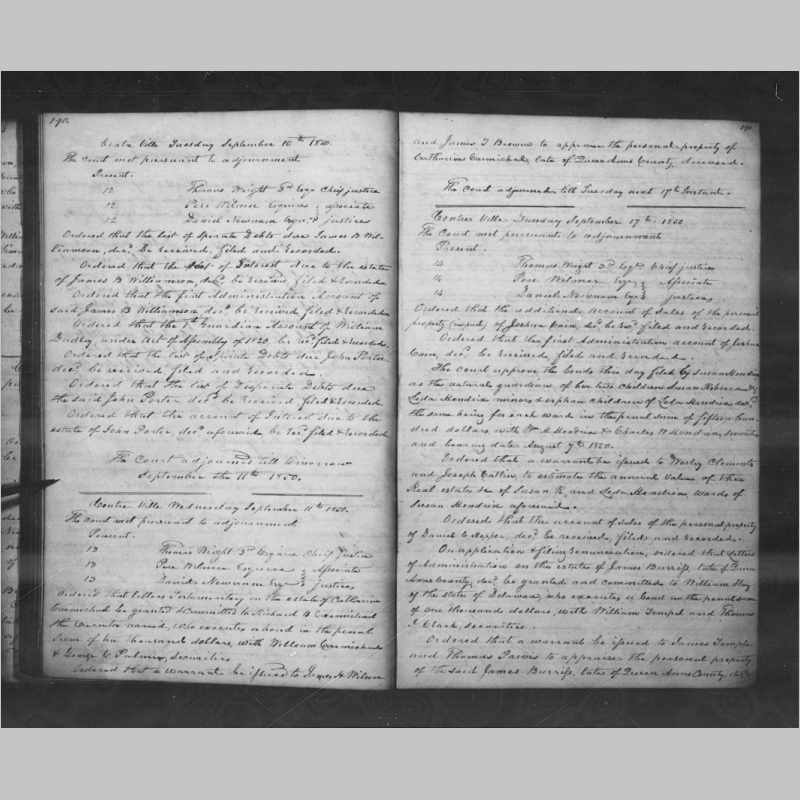 190.
Centre Ville Tuesday September 10th 1850.
The Court met pursuant to adjournment
Present.
12 Thomas Wright 3d Esqr Chief justice
12 Pere Wilmer Esquire } Associate
12 Daniel Newnam Esqr. } justices
Ordered that the list of Sperate Debts due James B Wil-
liamson, decd. be received, filed and recorded.
Ordered that the list of Interest due to the estate
of James B Williamson, decd. be received filed & recorded
Ordered that the first Administration Account of
said James B Williamson decd. be received filed & recorded
Ordered that the Guardian Account of William
Dudley, under Act of Assembly of 1829 be recd. filed & recorded.
Ordered that the list of Sperate Debts due John Porter
decd. be received filed and recorded.
Ordered that the list of Desperate Debts due
the said John Porter decd. be received filed & recorded
Ordered that the account of Interest due to the
estate of John Porter, decd. aforesaid be recd. filed & recorded
The Court adjourned till tomorrow
September the 11th 1850.
Centre Ville Wednesday September 11th 1850.
The Court met pursuant to adjournment
Present.
13 Thomas Wright 3d Esquire Chief justice
13 Pere Wilmer Esquire } Associate
13 Daniel Newnam Esqr } justices
Ordered that letters Testamentary on the estate of Catharine
Carmichael be granted & committed to Richard B Carmichael
the Executor named, who executes a bond in the penal
sum of ten thousand dollars, with William Carmichael
& George Palmer, Securities
Ordered that a warrant be issued to James H Wilson
and James T Browne to appraise the personal property of
Catharine Carmichael, late of Queen Anns County, deceased.
The Court adjourned till Tuesday next 17th Instant.
Centre Ville Tuesday September 17th 1850
The Court met pursuant to adjournment
Present.
14 Thomas Wright 3d Esqr Chief justice
14 Pere Wilmer Esqr } Associate
14 Daniel Newnam Esqr } justices
Ordered that the additional Account of Sales of the personal
property of Joshua Cain, decd. be recd. filed and recorded
Ordered that the first Administration account of Joshua
Cain, decd. be received, filed and recorded.
The Court approve the bonds this day filed by Susan Hendrix
as the natural guardian of her two children Susan Rebecca &
Leda Hendrix minors & orphan children of Leda Hendrix decd.
the same being for each ward in the penal sum of fifteen hun-
dred dollars with Hendrix & Charles W Hendrix, securities
and bearing date August 7th 1850.
Ordered that a warrant be issued to Wesley Clements
and Joseph Catlin to estimate the annual value of the
Real estate of Susan R. and Leda Hendrix wards of
Susan Hendrix aforesaid.
Ordered that the account of sales of the personal property
of Daniel C Harper, decd. be received, filed and recorded.
On application & filing renunciation, ordered that letters
of Administration on the estate of James Burriss, late of Queen
Anns County, decd. be granted and committed to William Hoy
of the state of Delaware, who executes a bond in the penal sum
of one thousand dollars, with William Temple and Thomas
J. Clark, securities.
Ordered that a warrant be issued to James Temple
and Thomas to appraise the personal property
of the said James Burriss, late of Queen Anns County, decd.